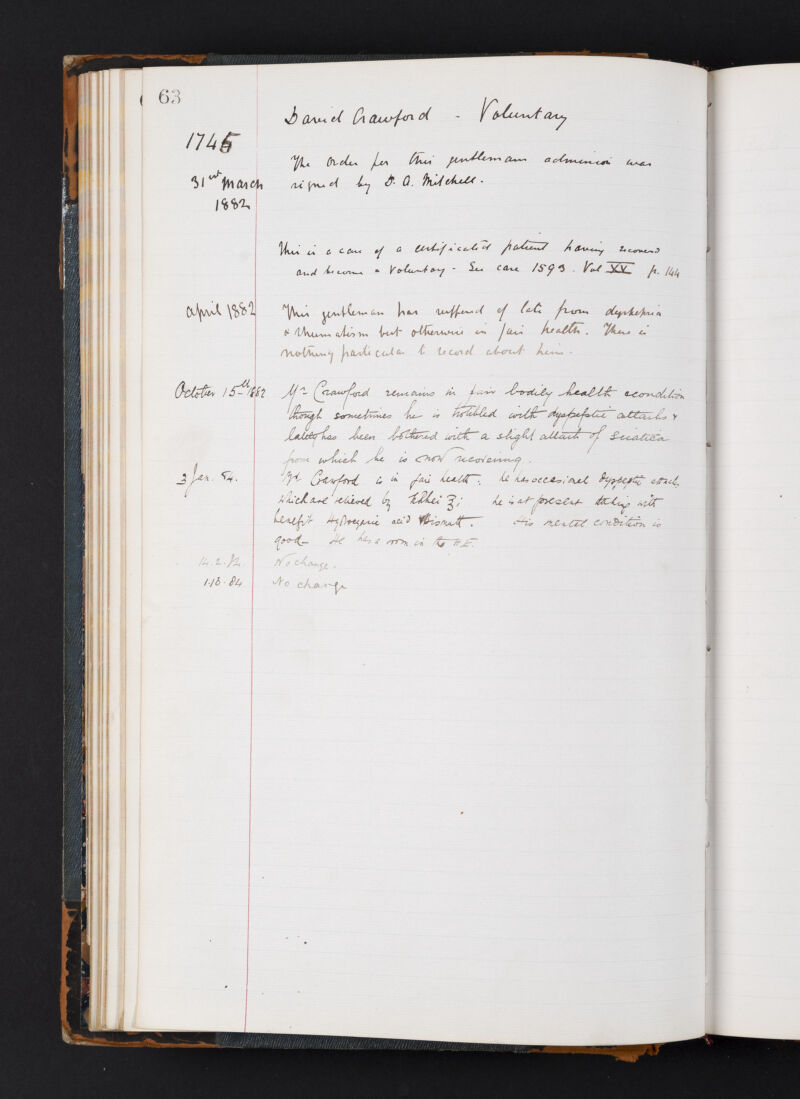 63
David Crawford - Voluntary
1745
The order for this gentleman's admission was
31st March signed by D. A. Mitchell.
1882
This is a case of a certificated patient having recovered
and become a Voluntary - See case 1593. Vol XV p. 144
April 1882 This gentleman has suffered of late from dyspepsia
& rheumatism but otherwise in fair health. There is
nothing particular to record about him.
October 15th 1882 Mr Crawford remains in fair bodily health & condition
though sometimes he is troubled with dyspeptic attacks &
lately has been bothered with a slight attack of sciatica
from which he is now recovering.
3 Jan. 84. Mr Crawford is in fair health: he has occasional dyspeptic attacks
which are relieved by ʒi he is at present with
benefit acid Bismuth. His mental condition is
good. He has a room in the
No change.
1.10.84 No change